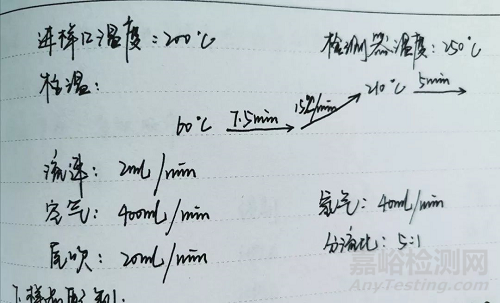 进样口温度:200℃ 检测器温度:250℃
柱温:
60℃ 7.5min 15℃/min 210℃ 5min
流速: 2mL/min
空气: 400mL/min 氢气: 40mL/min
尾吹: 20mL/min 分流比: 5:1
嘉峪检测网
AnyTesting.com